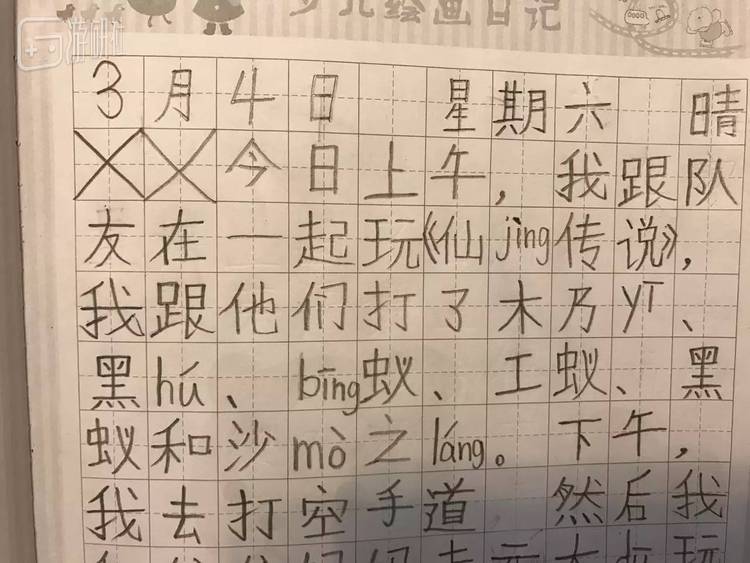 游研社
少儿绘画日记
3月4日 星期六 晴
今日上午，我跟队
友在一起玩《仙jìng传说》，
我跟他们打了木乃yī、
黑hú、bīng蚁、工蚁、黑
蚁和沙mò之láng。下午，
我去打空手道 然后我